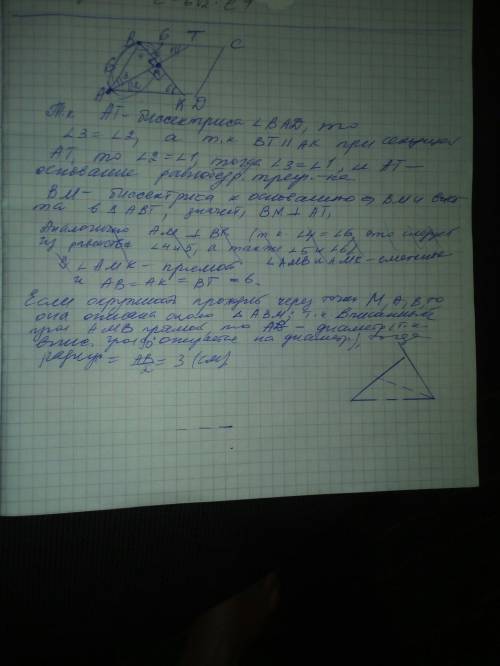 B 6 T C
6
A K D
Т.к. АТ - биссектриса ∠BAD, то
∠3=∠2, а т.к BT || AK при секущей
AT, то ∠2=∠1, тогда ∠3=∠1, и АТ -
основание равнобедр. треуг-ка
BM - биссектриса к основанию ⇒ BM и высо
та в △ABT, значит, BM ⊥ AT,
Аналогично AM ⊥ BK (т.к ∠4=∠6, это следует
из равенства ∠4 и 5, а также ∠5 и ∠6)
∠AMK - прямой ∠AMB и AMK - смежные
и AB = AK = BT = 6.
Если окружность проходит через точки M, A, B то
она описана около △ABM; т.к вписанный
угол AMB прямой, то AB - диаметр (т.к
впис. угол опирается на диаметр), тогда
радиус = AB/2 = 3 (см)